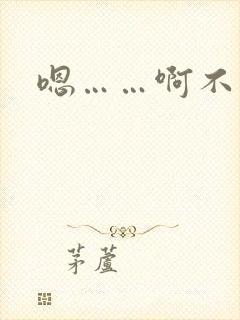 嗯……啊不
茅蘆